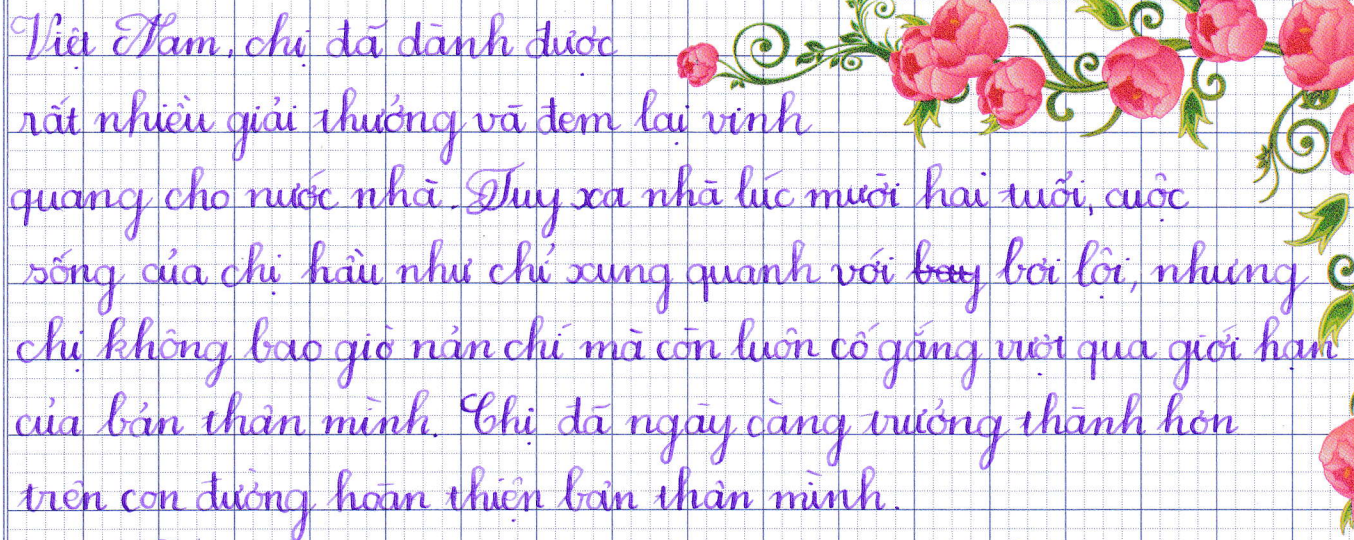 Việt Nam, chị đã dành được
rất nhiều giải thưởng và đem lại vinh
quang cho nước nhà. Tuy xa nhà lúc mười hai tuổi, cuộc
sống của chị hầu như chỉ xung quanh với bay bơi lội, nhưng
chị không bao giờ nản chí mà còn luôn cố gắng vượt qua giới hạn
của bản thân mình. Chị đã ngày càng trưởng thành hơn
trên con đường hoàn thiện bản thân mình.